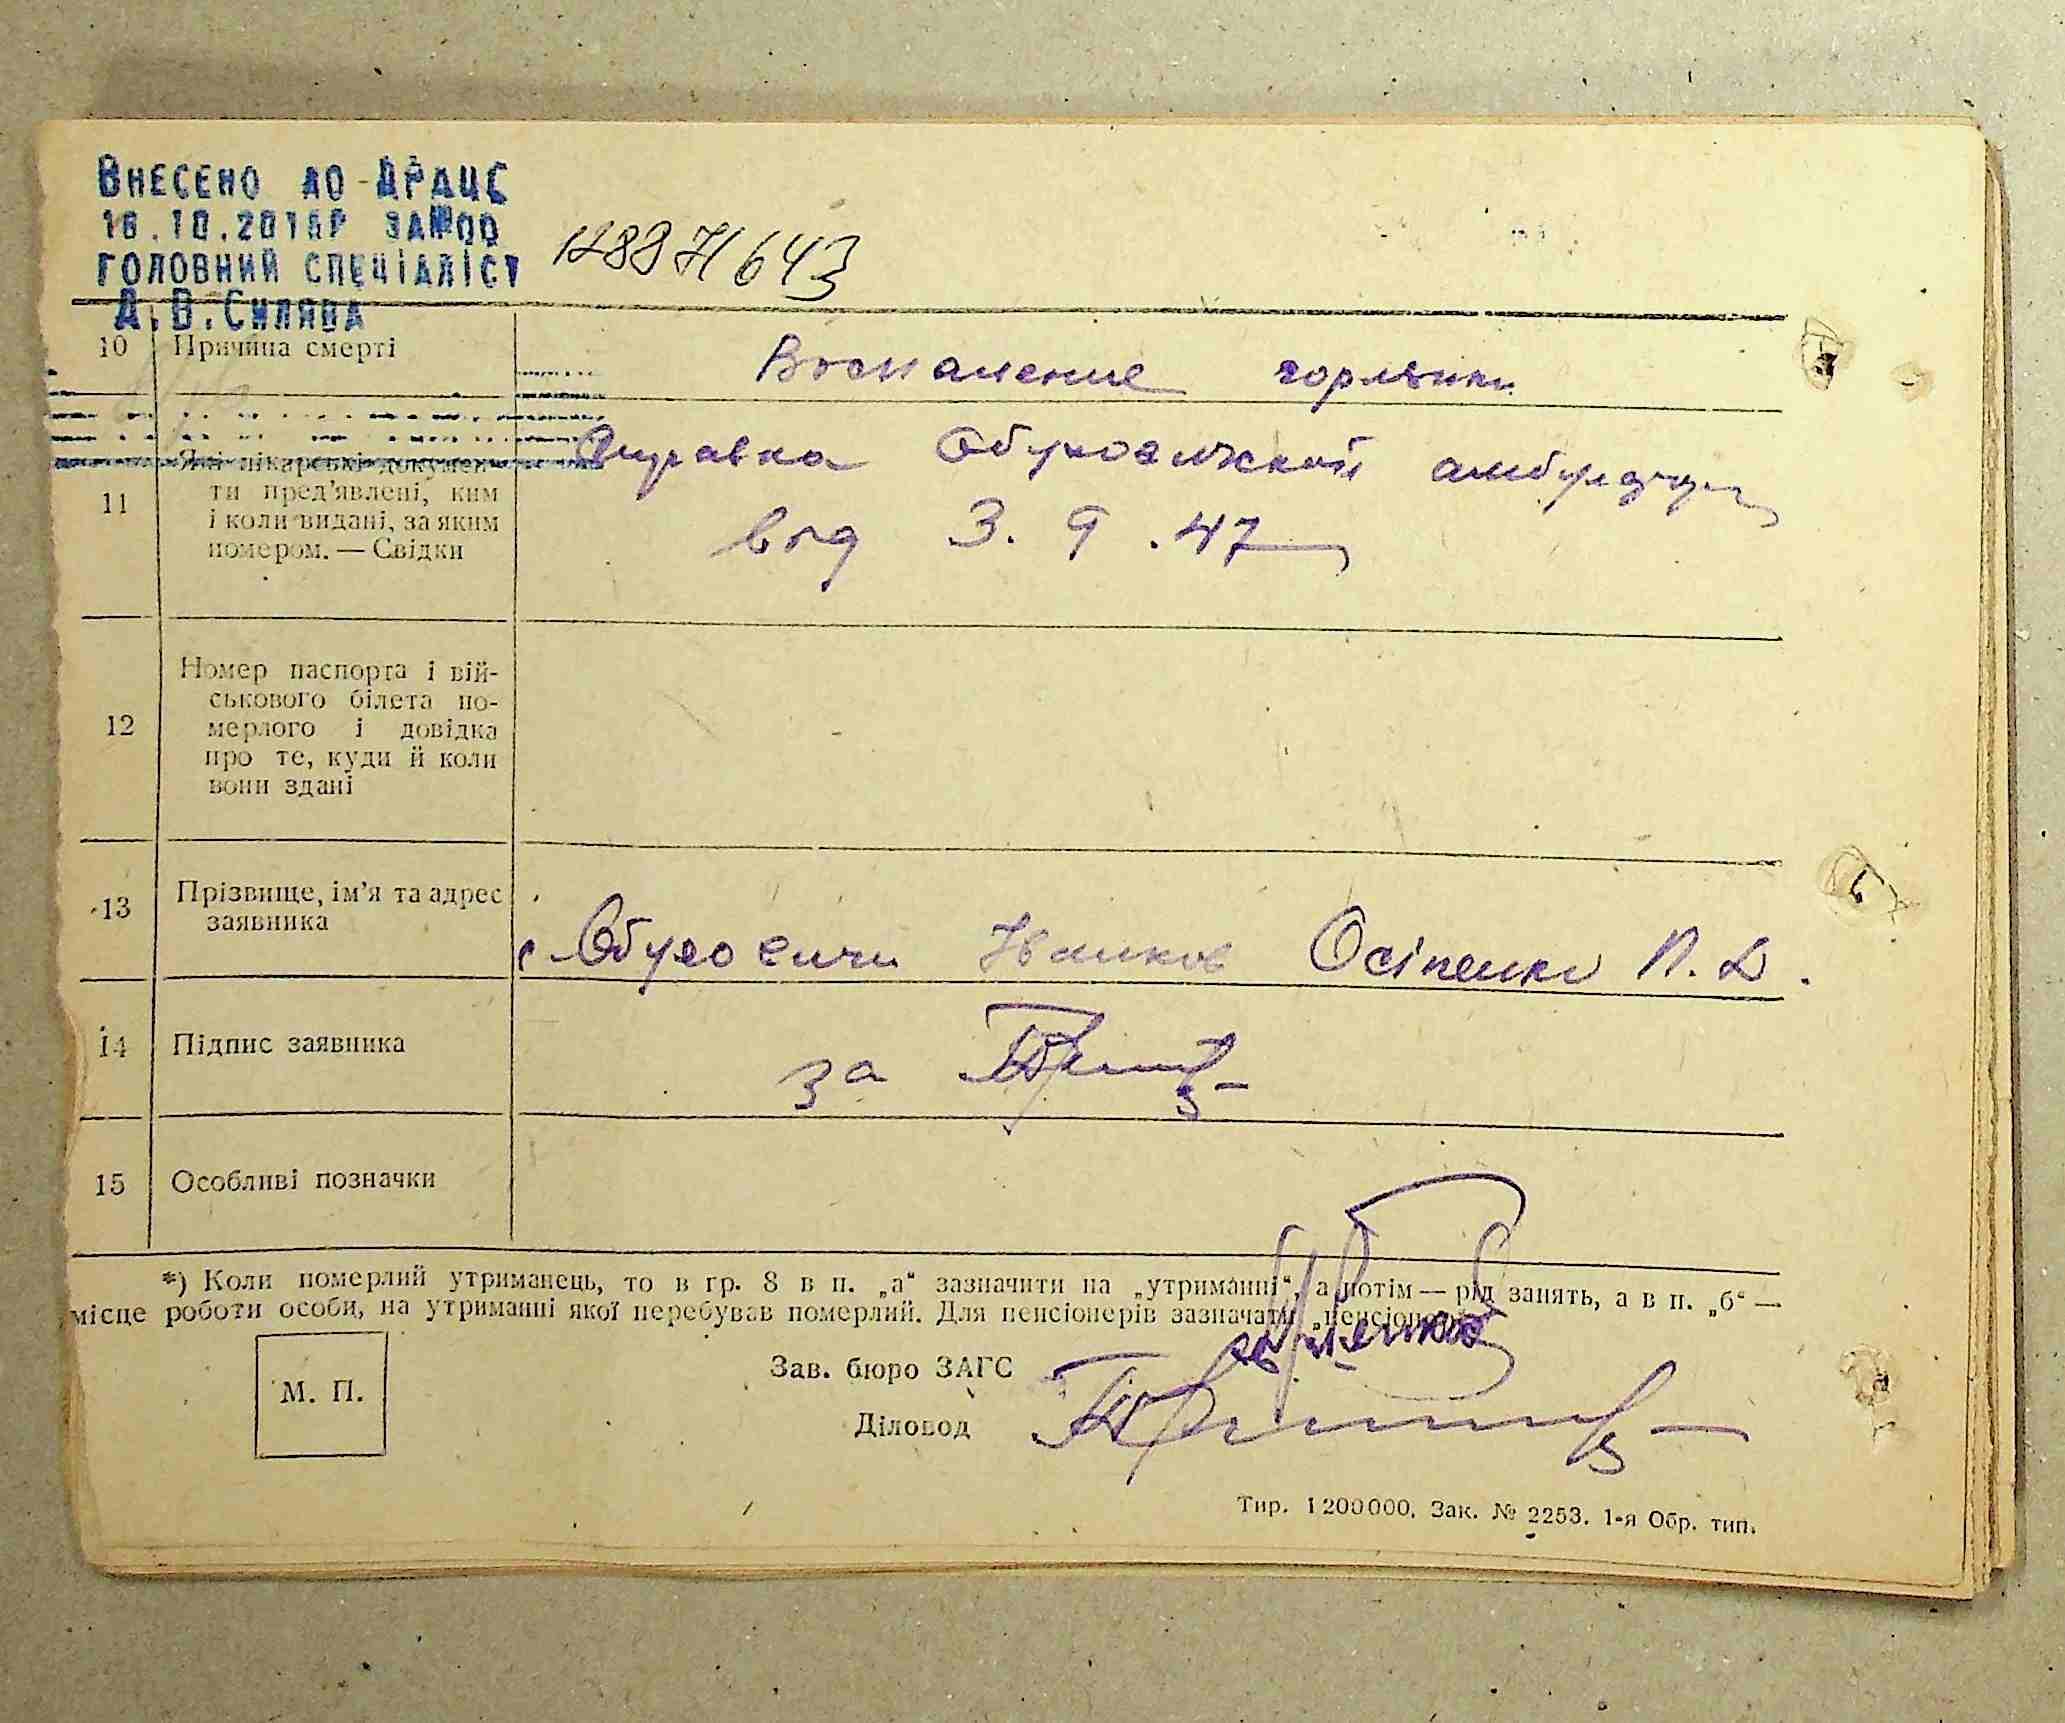 Внесено до ДРАЦС
16.10.2015р ЗА№00
головний спеціаліст
А.В.Силява
10 Причина смерті Воспаление горлянки
11 Які лікарські докумен-
ти пред'явлені, ким
і коли видані, за яким
номером. — Свідки
Справка Обуховичской амбулаторії
вод 3. 9 .47
12 Номер паспорта і вій-
ськового білета по-
мерлого і довідка
про те, куди й коли
вони здані
13 Прізвище, ім'я та адрес
заявника
с Обуховичи Іванков Осіпенко П. Д.
14 Підпис заявника за
15 Особливі позначки
*) Коли померлий утриманець, то в гр. 8 в п. „а“ зазначити на „утриманні“, а потім — рід занять, а в п. „б“ —
місце роботи особи, на утриманні якої перебував померлий. Для пенсіонерів зазначати „пенсіонер“.
М. П.
Зав. бюро ЗАГС
Діловод
Тир. 1200000. Зак. № 2253. 1-я Обр. тип.